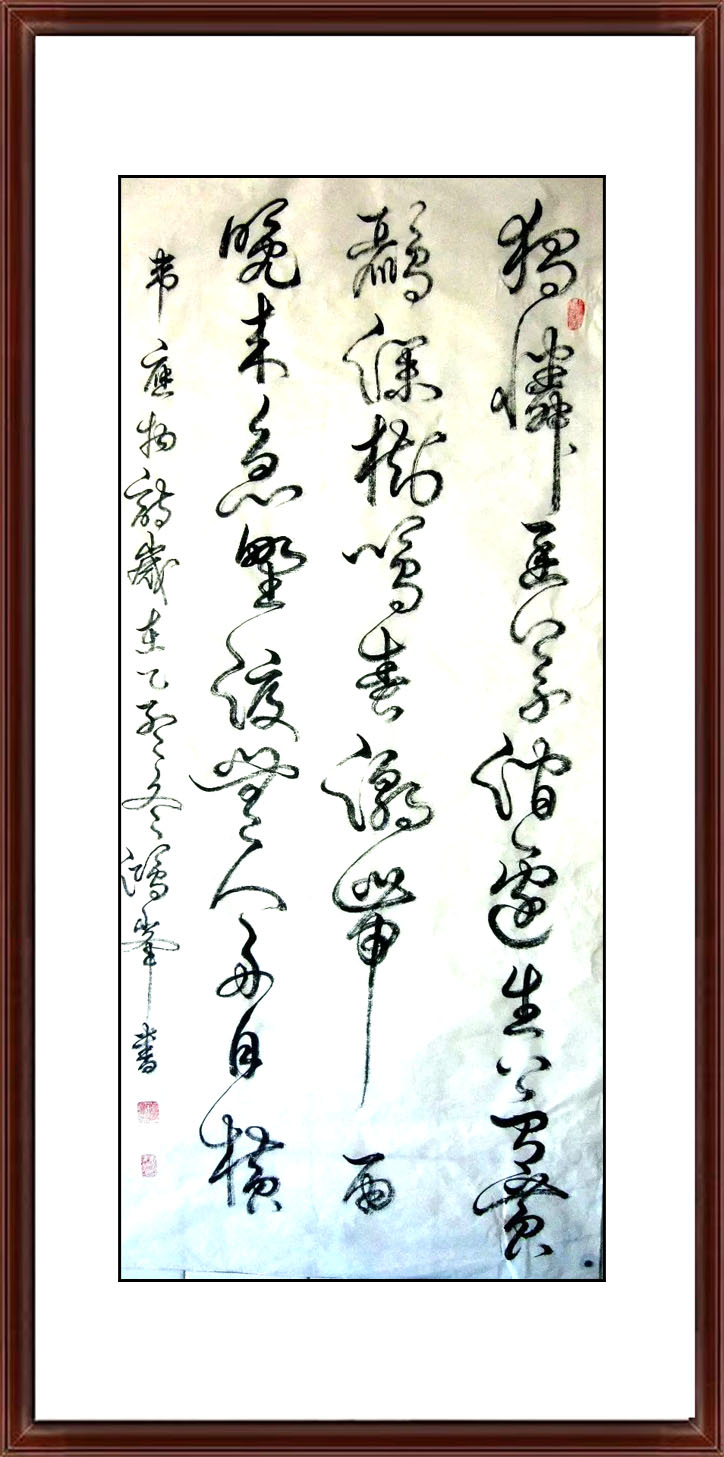 獨憐幽草澗邊生上有黃
鸝深樹鳴春潮帶雨
晚來急野渡無人舟自橫
韋應物詩歲在乙冬鴻峰書